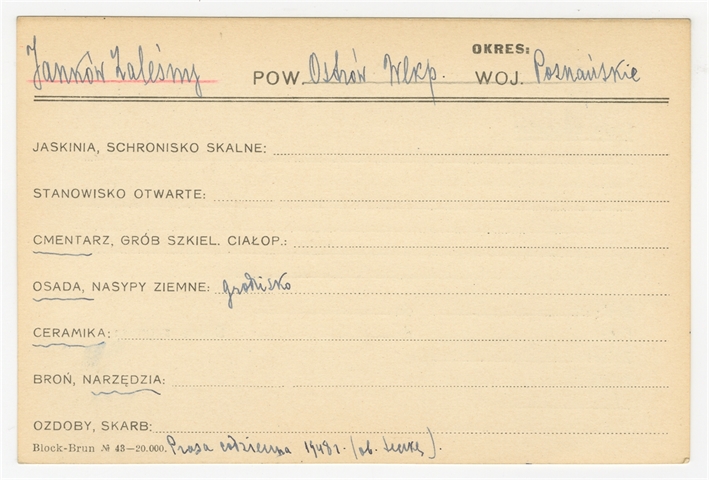 OKRES:
Janków Zaleśny POW. Ostrów Wlkp. WOJ. Poznańskie
JASKINIA, SCHRONISKO SKALNE:
STANOWISKO OTWARTE:
CMENTARZ, GRÓB SZKIEL. CIAŁOP.:
OSADA, NASYPY ZIEMNE: grodzisko
CERAMIKA:
BROŃ, NARZĘDZIA:
OZDOBY, SKARB:
Block-Brun № 43—20.000. Prasa codzienna 1948 r. (ob. teckę).